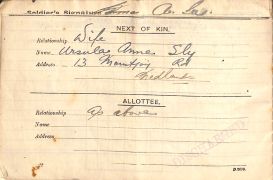 Soldier's Signature
NEXT OF KIN.
Relationship Wife
Name Ursula Annie Sly
Address 13 Rd
Midland
ALLOTTEE.
Relationship as above
Name
Address